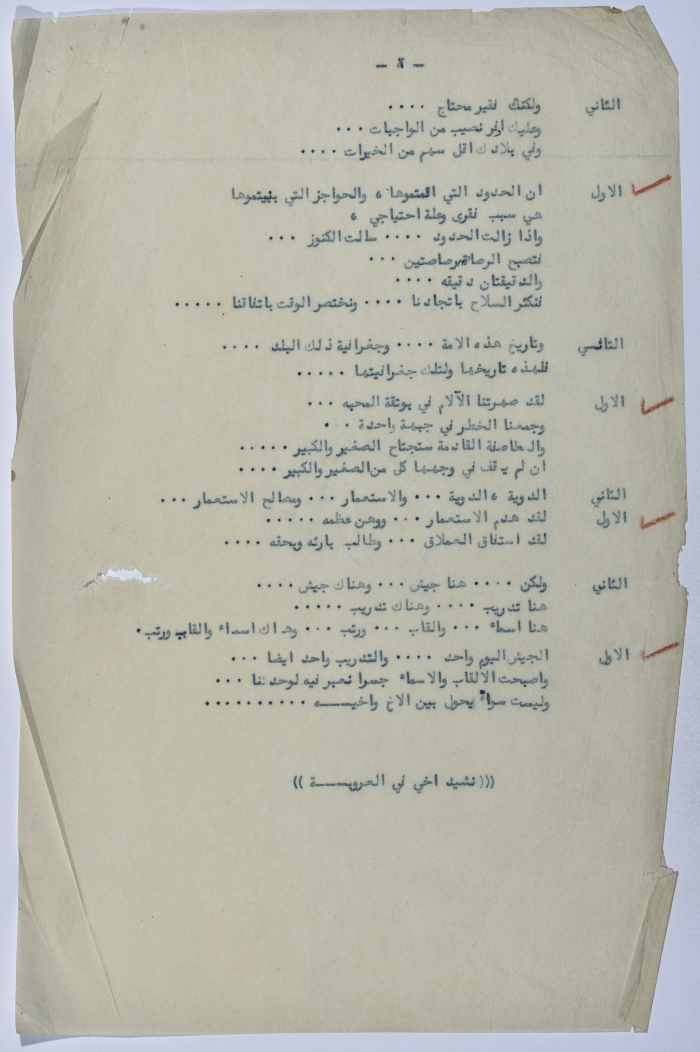 - ٤ -
الثاني ولكنك فقير محتاج ....
وعليك اوفر نصيب من الواجبات ...
وفي بلادك اقل سهم من الخيرات ....
الاول ان الحدود التي اقمتموها ، والحواجز التي بنيتموها
هي سبب فقرى وعلة احتياجي ،
واذا زالت الحدود .... سالت الكنوز ...
فتصبح الرصاصة رصاصتين ...
والدقيقتان دقيقه ....
فنكثر السلاح باتحادنا .... ونختصر الوقت باتفاقنا .....
الثاني وتاريخ هذه الامة .... وجغرافية ذلك البلد ....
فلهذه تاريخها ولتلك جغرافيتها .....
الاول لقد صهرتنا الآلام في بوتقة المحبه ...
وجمعنا الخطر في جبهة واحدة ...
والعاصفة القادمة ستجتاح الصغير والكبير .....
ان لم يقف في وجهها كل من الصغير والكبير ....
الثاني الدوية ، الدوية ... والاستعمار ... ومصالح الاستعمار ...
الاول لقد هدم الاستعمار ... ووهن عظمه .....
لقد استفاق العملاق ... وطالب بارثه وبحقه ....
الثاني ولكن .... هنا جيش ... وهناك جيش ....
هنا تدريب .... وهناك تدريب .....
هنا اسماء ... والقاب ... ورتب ... وهناك اسماء والقاب ورتب .
الاول الجيش اليوم واحد .... والتدريب واحد ايضا ...
واصبحت الالقاب والاسماء جسرا نعبر فيه لوحدتنا ...
وليست سوراً يحول بين الاخ واخيـــه ..........
((( نشيد اخي في العروبـــة ))